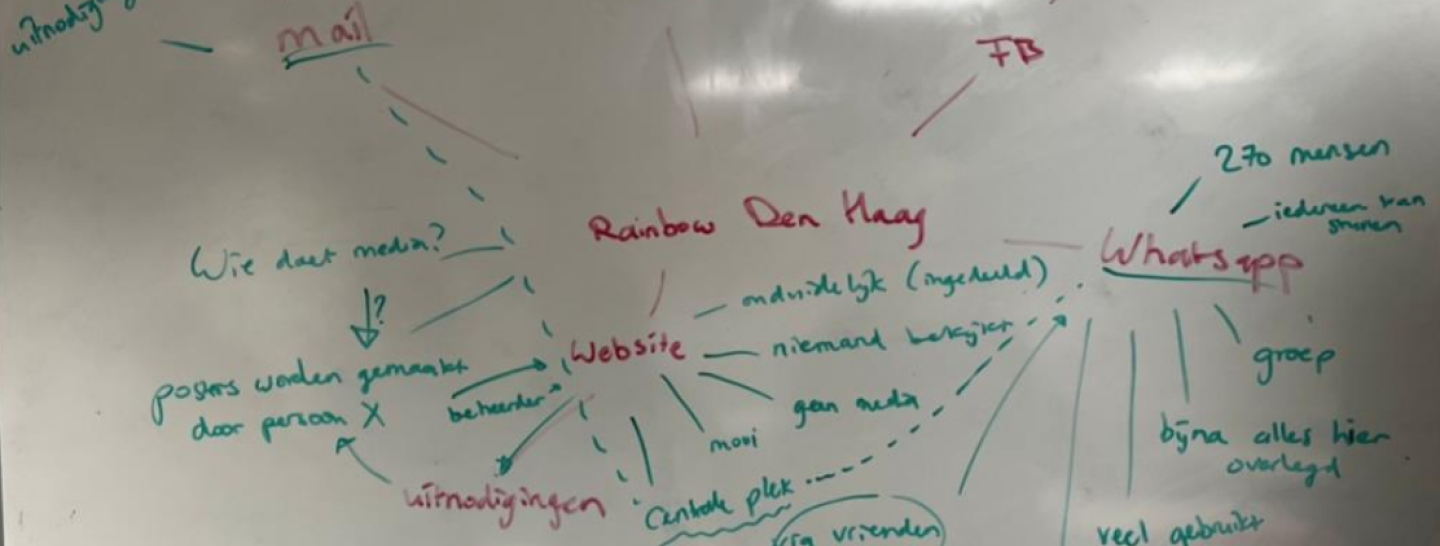 mail
FB
270 mensen
iedereen kan
sturen
Rainbow Den Haag
Whatsapp
Wie doet media?
?
onduidelijk (ingedeeld)
Website
niemand bekijkt
groep
posters worden gemaakt
door persoon X
beheerder
geen media
mooi
bijna alles hier
overlegd
uitnodigingen
Centrale plek
via vrienden
veel gebruikt